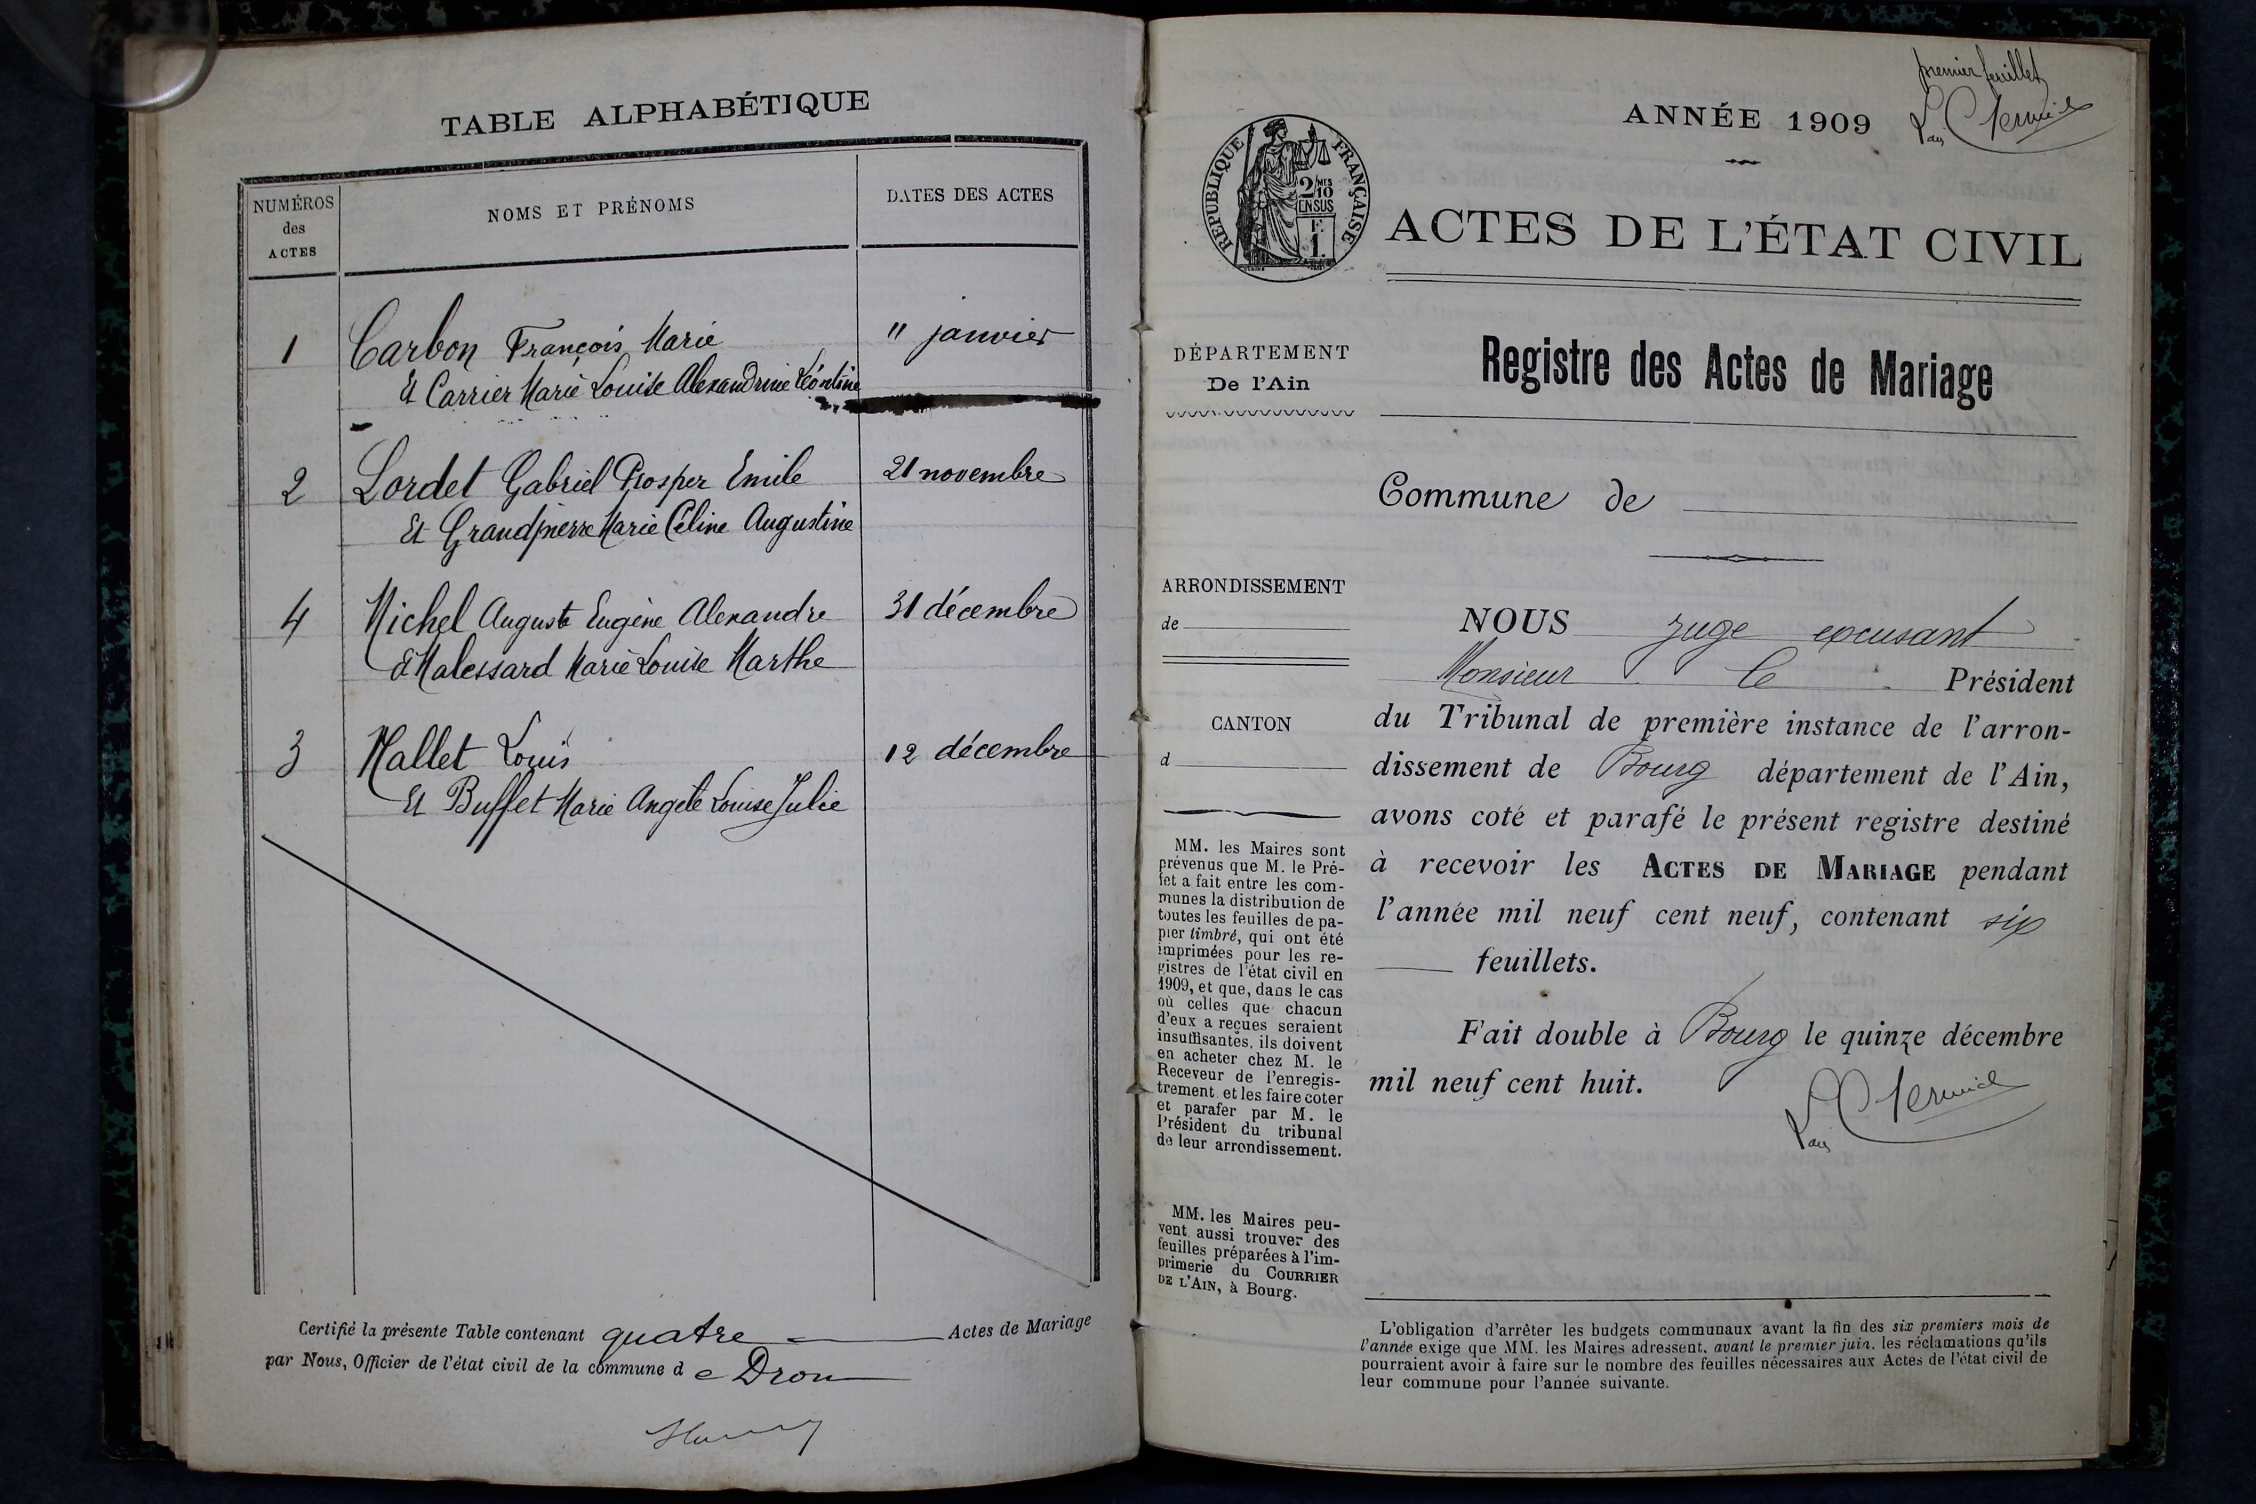 TABLE ALPHABÉTIQUE
NUMÉROS
des
ACTES
NOMS ET PRÉNOMS
DATES DES ACTES
1 Carbon François Marie 11 janvier
Et Carrier Marie Louise Alexandrine Léontine
2 Lordet Gabriel Prosper Emile 21 novembre
Et Grandpierre Marie Céline Augustine
4 Michel Auguste Eugène Alexandre 31 décembre
& Malessard Marie Louise Marthe
3 Mallet Louis 12 décembre
Et Buffet Marie Angele Louise Julie
Certifié la présente Table contenant quatre Actes de Mariage
par Nous, Officier de l'état civil de la commune de Drom
premier feuillet
ANNÉE 1909
RÉPUBLIQUE FRANÇAISE
2/10MES
EN SUS
F.
1.
ACTES DE L'ÉTAT CIVIL
DÉPARTEMENT
De l'Ain
Registre des Actes de Mariage
Commune de
ARRONDISSEMENT
de
CANTON
d
MM. les Maires sont
prévenus que M. le Pré-
fet a fait entre les com-
munes la distribution de
toutes les feuilles de pa-
pier timbré, qui ont été
imprimées pour les re-
gistres de l'état civil en
1909, et que, dans le cas
où celles que chacun
d'eux a reçues seraient
insuffisantes, ils doivent
en acheter chez M. le
Receveur de l'enregis-
trement et les faire coter
et parafer par M. le
Président du tribunal
de leur arrondissement.
MM. les Maires peu-
vent aussi trouver des
feuilles préparées à l'im-
primerie du COURRIER
DE L'AIN, à Bourg.
NOUS juge excusant
Monsieur le Président
du Tribunal de première instance de l'arron-
dissement de Bourg département de l'Ain,
avons coté et parafé le présent registre destiné
à recevoir les ACTES DE MARIAGE pendant
l'année mil neuf cent neuf, contenant six
feuillets.
Fait double à Bourg le quinze décembre
mil neuf cent huit.
L'obligation d'arrêter les budgets communaux avant la fin des six premiers mois de
l'année exige que MM. les Maires adressent, avant le premier juin, les réclamations qu'ils
pourraient avoir à faire sur le nombre des feuilles nécessaires aux Actes de l'état civil de
leur commune pour l'année suivante.